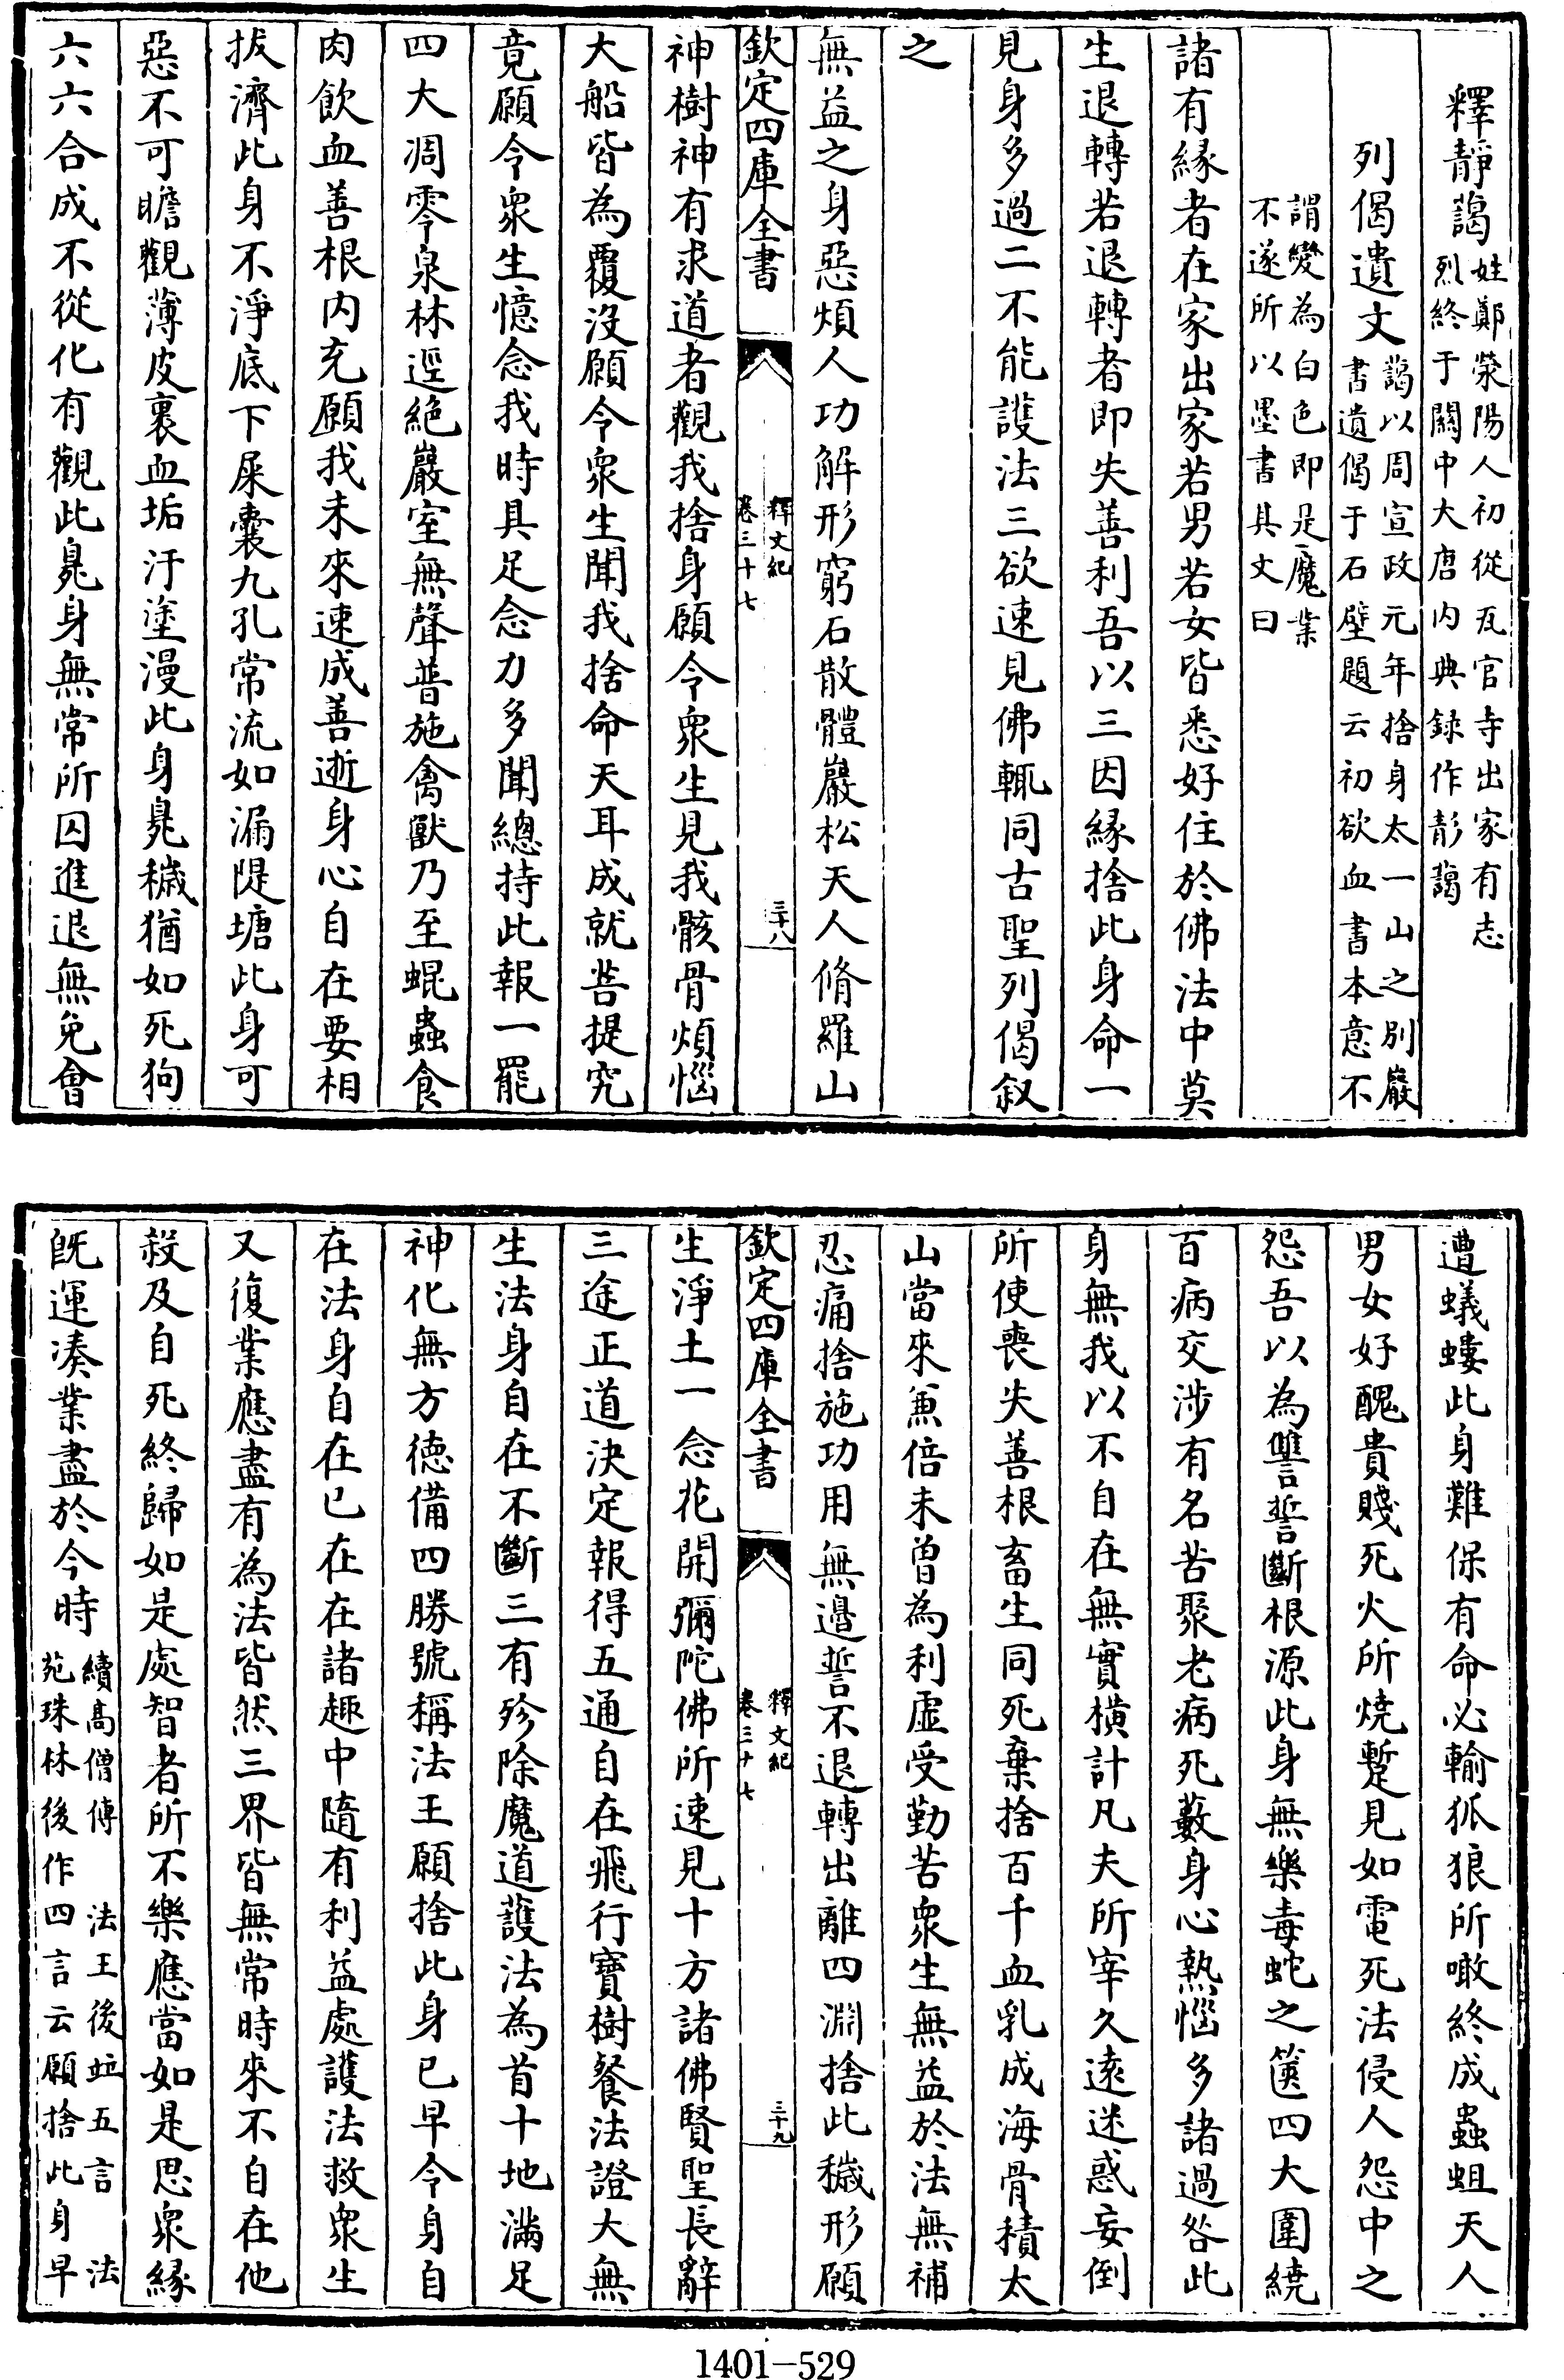 釋靜藹姓鄭滎陽人初從瓦官寺出家有志
烈終于關中大唐内典録作彭藹
列偈遺文藹以周宣政元年捨身太一山之别巖
書遺偈于石壁題云初欲血書本意不
謂變為白色即是魔業
不遂所以墨書其文曰
諸有縁者在家出家若男若女皆悉好住於佛法中莫
生退轉若退轉者即失善利吾以三因縁捨此身命一
見身多過二不能護法三欲速見佛輒同古聖列偈叙
之
無益之身惡煩人功解形窮石散體巖松天人脩羅山
欽定四庫全書
釋文紀
卷三十七
三十八
神樹神有求道者觀我捨身願令衆生見我骸骨煩惱
大船皆為覆沒願令衆生聞我捨命天耳成就菩提究
竟願令衆生憶念我時具足念力多聞總持此報一罷
四大凋零泉林逕絶巖室無聲普施禽獸乃至蜫蟲食
肉飲血善根内充願我未來速成善逝身心自在要相
拔濟此身不淨底下屎囊九孔常流如漏隄塘此身可
惡不可瞻觀薄皮裹血垢汙塗漫此身臭穢猶如死狗
六六合成不從化有觀此臭身無常所囚進退無免會
遭蟻螻此身難保有命必輸狐狼所噉終成蟲蛆天人
男女好醜貴賤死火所燒蹔見如電死法侵人怨中之
怨吾以為讐誓斷根源此身無樂毒蛇之篋四大圍繞
百病交涉有名苦聚老病死藪身心熱惱多諸過咎此
身無我以不自在無實横計凡夫所宰久遠迷惑妄倒
所使喪失善根畜生同死棄捨百千血乳成海骨積太
山當來兼倍未曾為利虚受勤苦衆生無益於法無補
忍痛捨施功用無邊誓不退轉出離四淵捨此穢形願
欽定四庫全書
釋文紀
卷三十七
三十九
生淨土一念花開彌陀佛所速見十方諸佛賢聖長辭
三途正道決定報得五通自在飛行寶樹餐法證大無
生法身自在不斷三有殄除魔道護法為首十地滿足
神化無方徳備四勝號稱法王願捨此身已早令身自
在法身自在已在在諸趣中隨有利益處護法救衆生
又復業應盡有為法皆然三界皆無常時來不自在他
殺及自死終歸如是處智者所不樂應當如是思衆縁
旣運湊業盡於今時續高僧傳 法王後竝五言 法
苑珠林後作四言云願捨此身早
1401-529